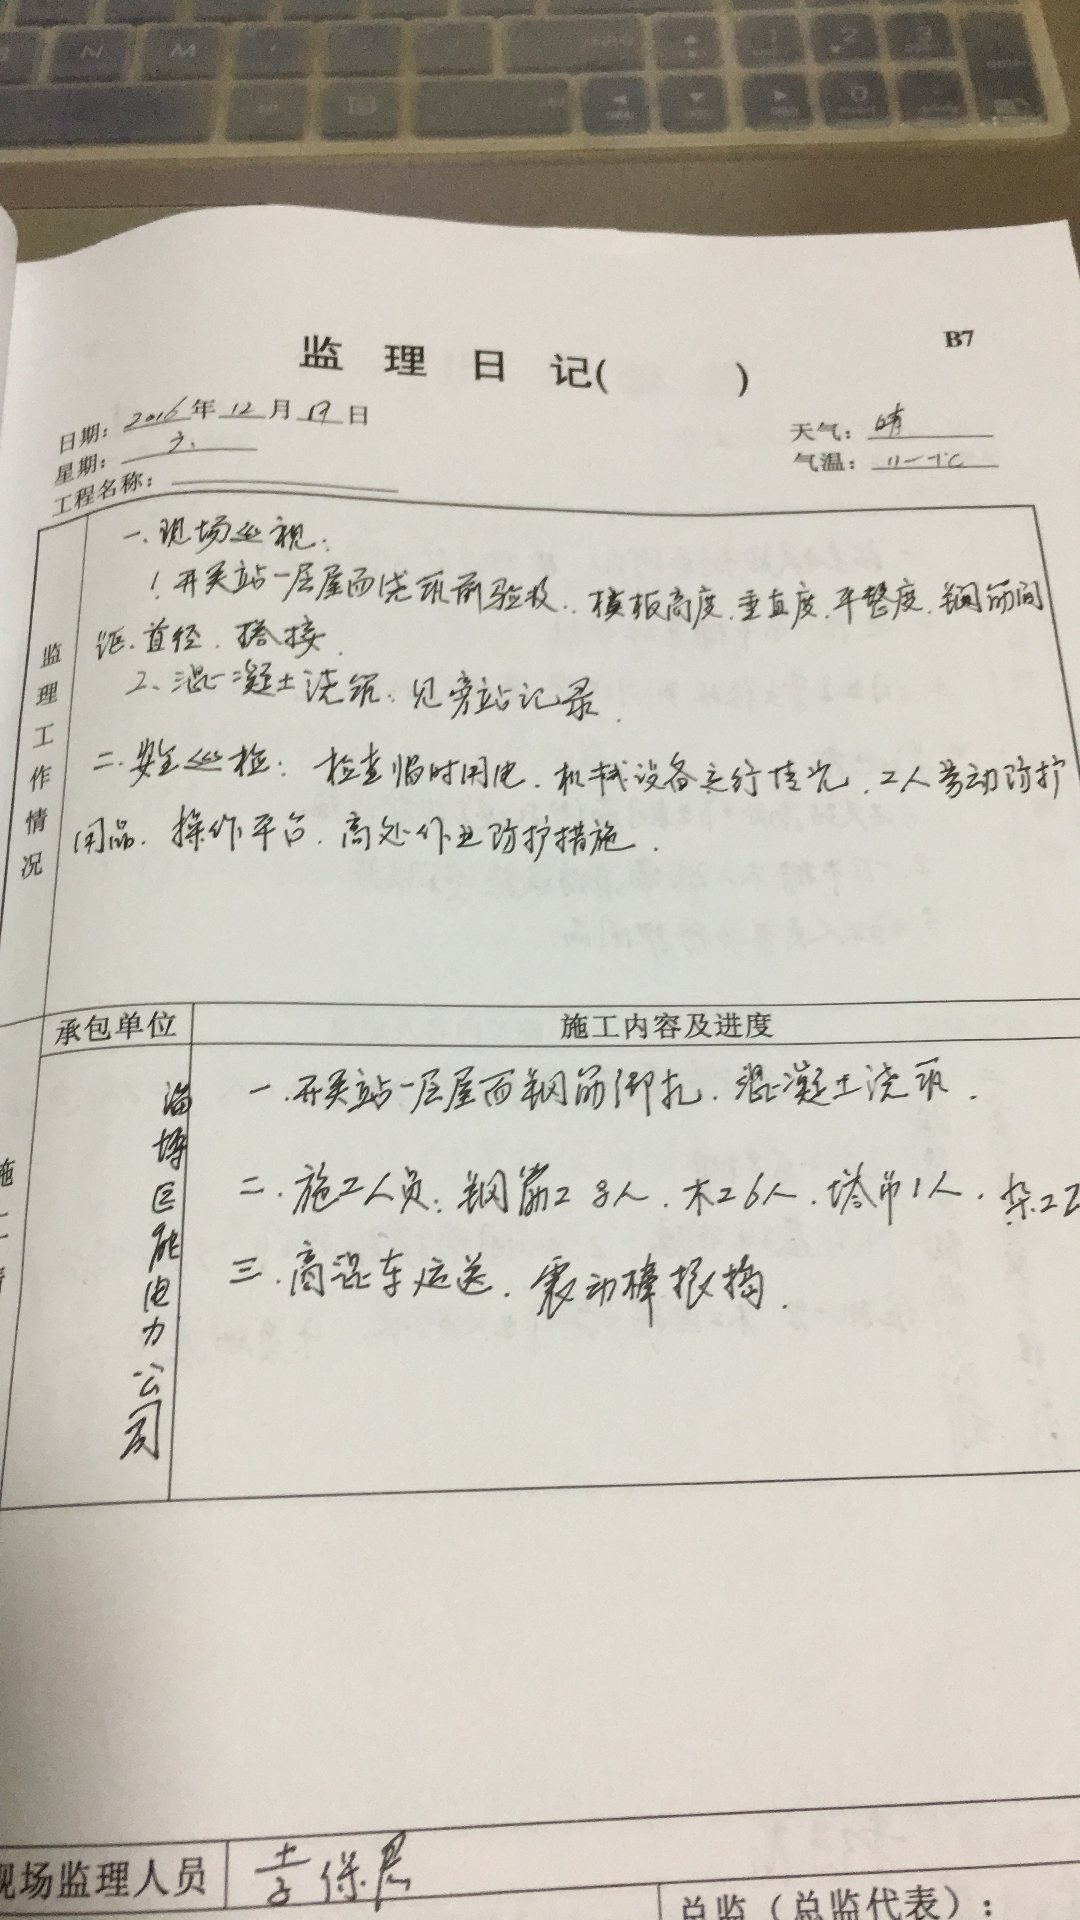 B7
监 理 日 记( )
日期: 2016 年 12 月 17 日
天气: 晴
星期: 六.
气温:
工程名称:
监理工作情况
一.现场巡视:
1.开关站一层屋面浇筑前验收.模板高度.垂直度.平整度.钢筋间
距.直径.搭接.
2.混凝土浇筑:见旁站记录.
二.安全巡检:检查临时用电.机械设备运行情况.工人劳动防护
用品.操作平台.高处作业防护措施.
承包单位
施工内容及进度
巨能电力公司
一.开关站一层屋面钢筋绑扎.混凝土浇筑.
二.施工人员:钢筋工8人.木工6人.塔吊1人.杂工
三.商混车运送.震动棒振捣.
现场监理人员
李保
总监(总监代表):